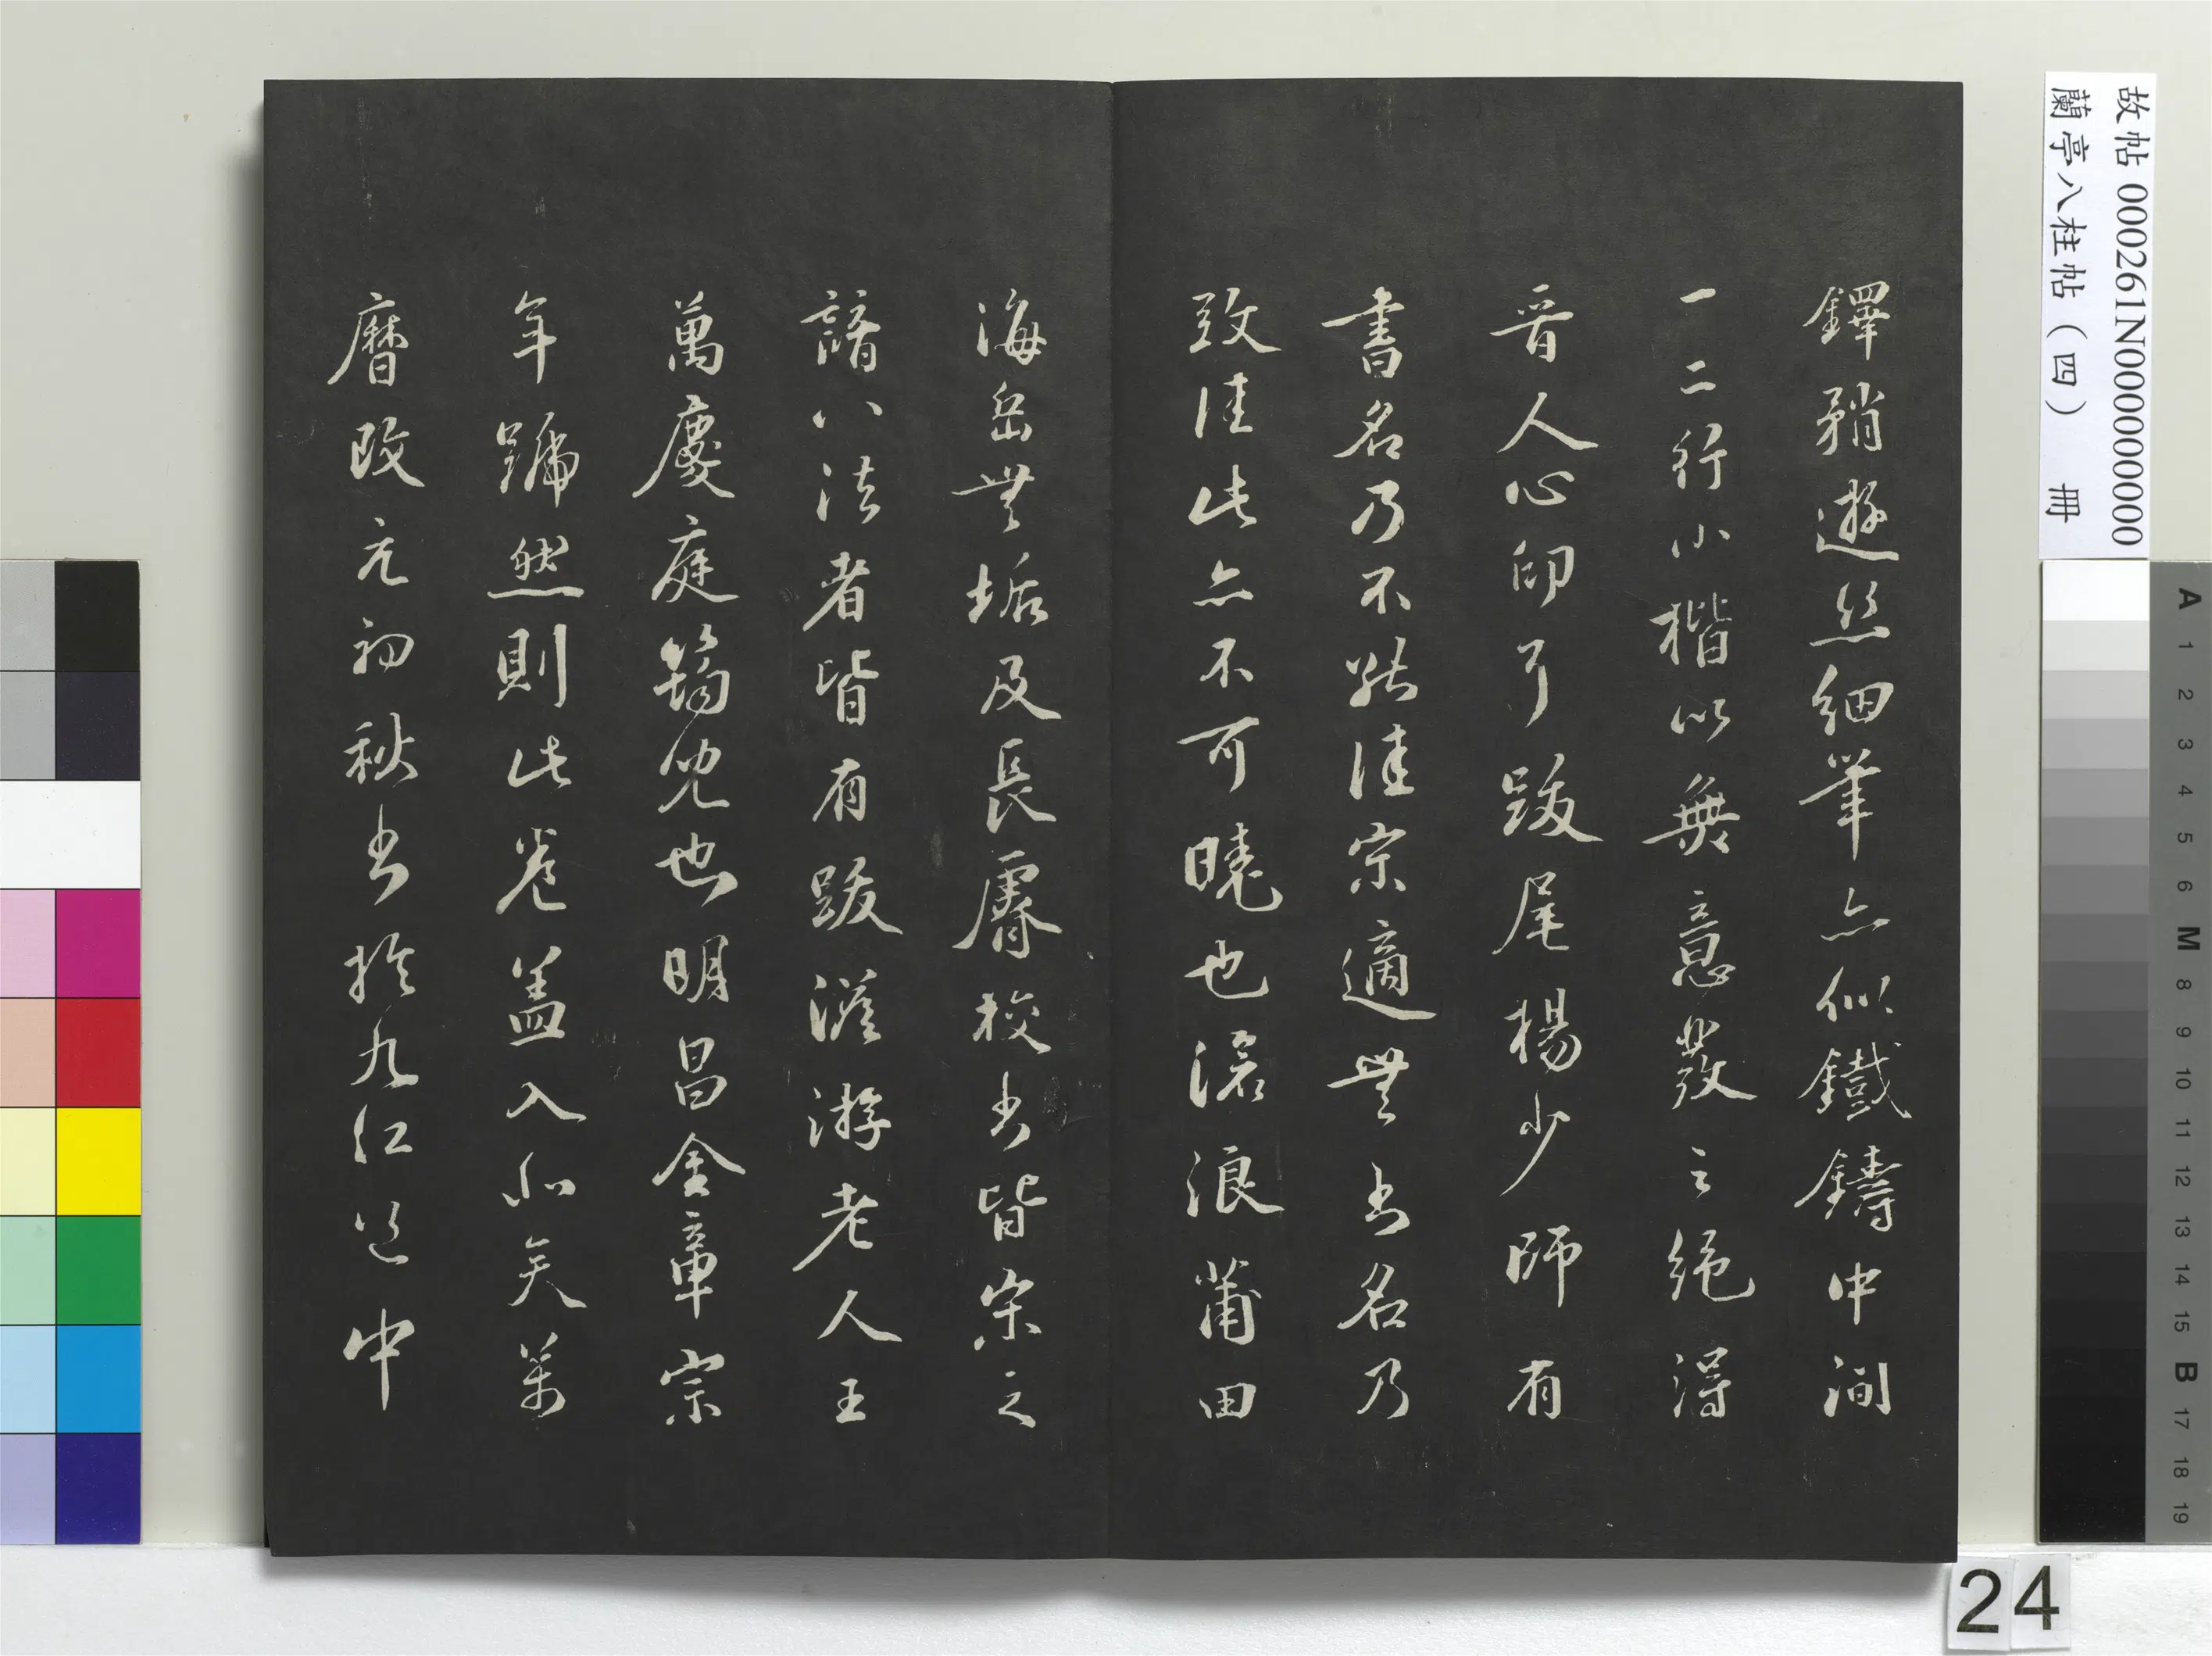 鐸矟遊絲細筆亦似鐵鑄中間
一二行小楷以無意發之絕得
晉人心印了跋尾楊少師有
書名乃不能佳宗適無書名乃
致佳此亦不可曉也滄浪莆田
海岳無垢及長睿校書皆宋之
諳八法者皆有跋滏游老人王
萬慶庭筠兒也明昌金章宗
年號然則此卷蓋入北矣萬
曆改元初秋書於九江道中
故帖000261N000000000
蘭亭八柱帖（四） 冊
A 1 2 3 4 5 6 M 8 9 10 11 12 13 14 15 B 17 18 19
24